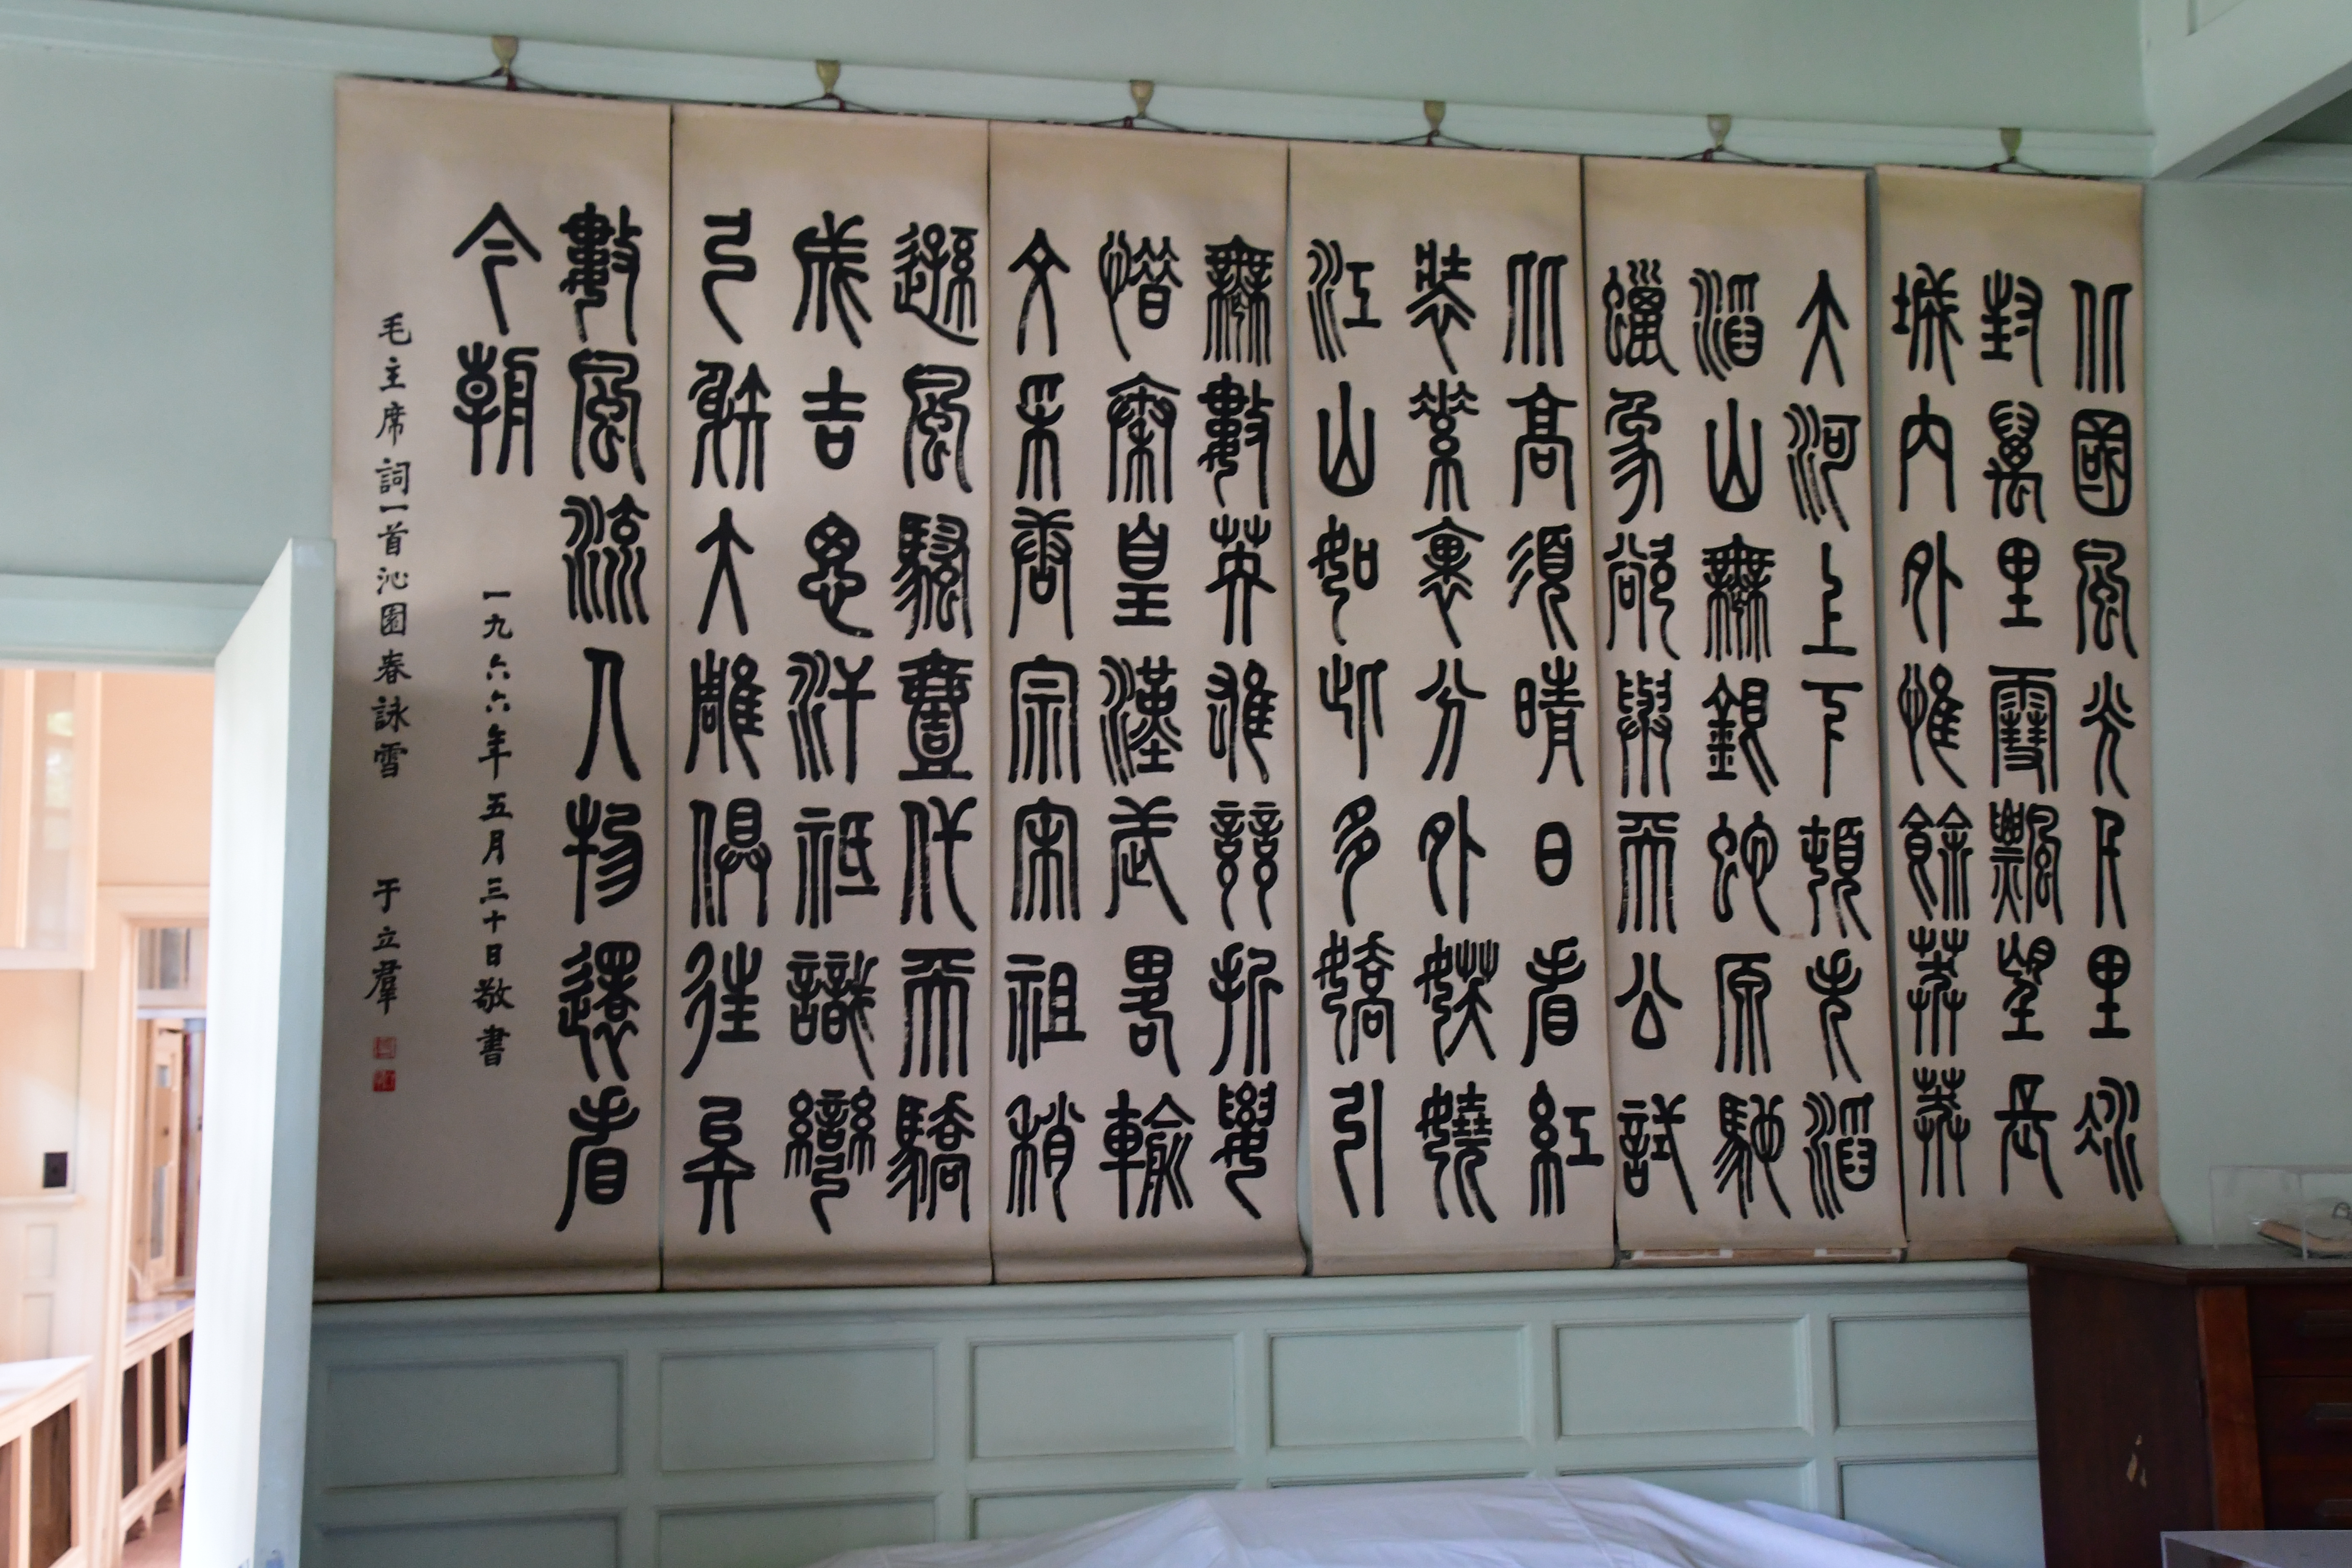 北國風光千里冰
封萬里雪飄望長
城内外惟餘莽莽
大河上下頓失滔
滔山舞銀蛇原馳
蠟象欲與天公試
比高須晴日看紅
裝素裹分外妖嬈
江山如此多嬌引
無數英雄競折腰
惜秦皇漢武畧輸
文采唐宗宋祖稍
遜風騷壹代天驕
成吉思汗祇識彎
弓射大雕俱往矣
數風流人物還看
今朝
一九六六年五月三十日敬書
毛主席詞一首沁園春詠雪 于立羣